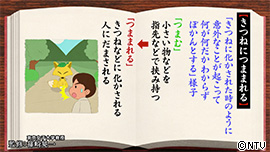 【きつねにつままれる】
「きつねに化かされた時のように
意外なことが起こって
何が何だかわからず
ぽかんとする」様子
【つまむ】
小さい物などを
指先などで挟み持つ
【つままれる】
きつねなどに化かされる
人にだまされる
©NTV